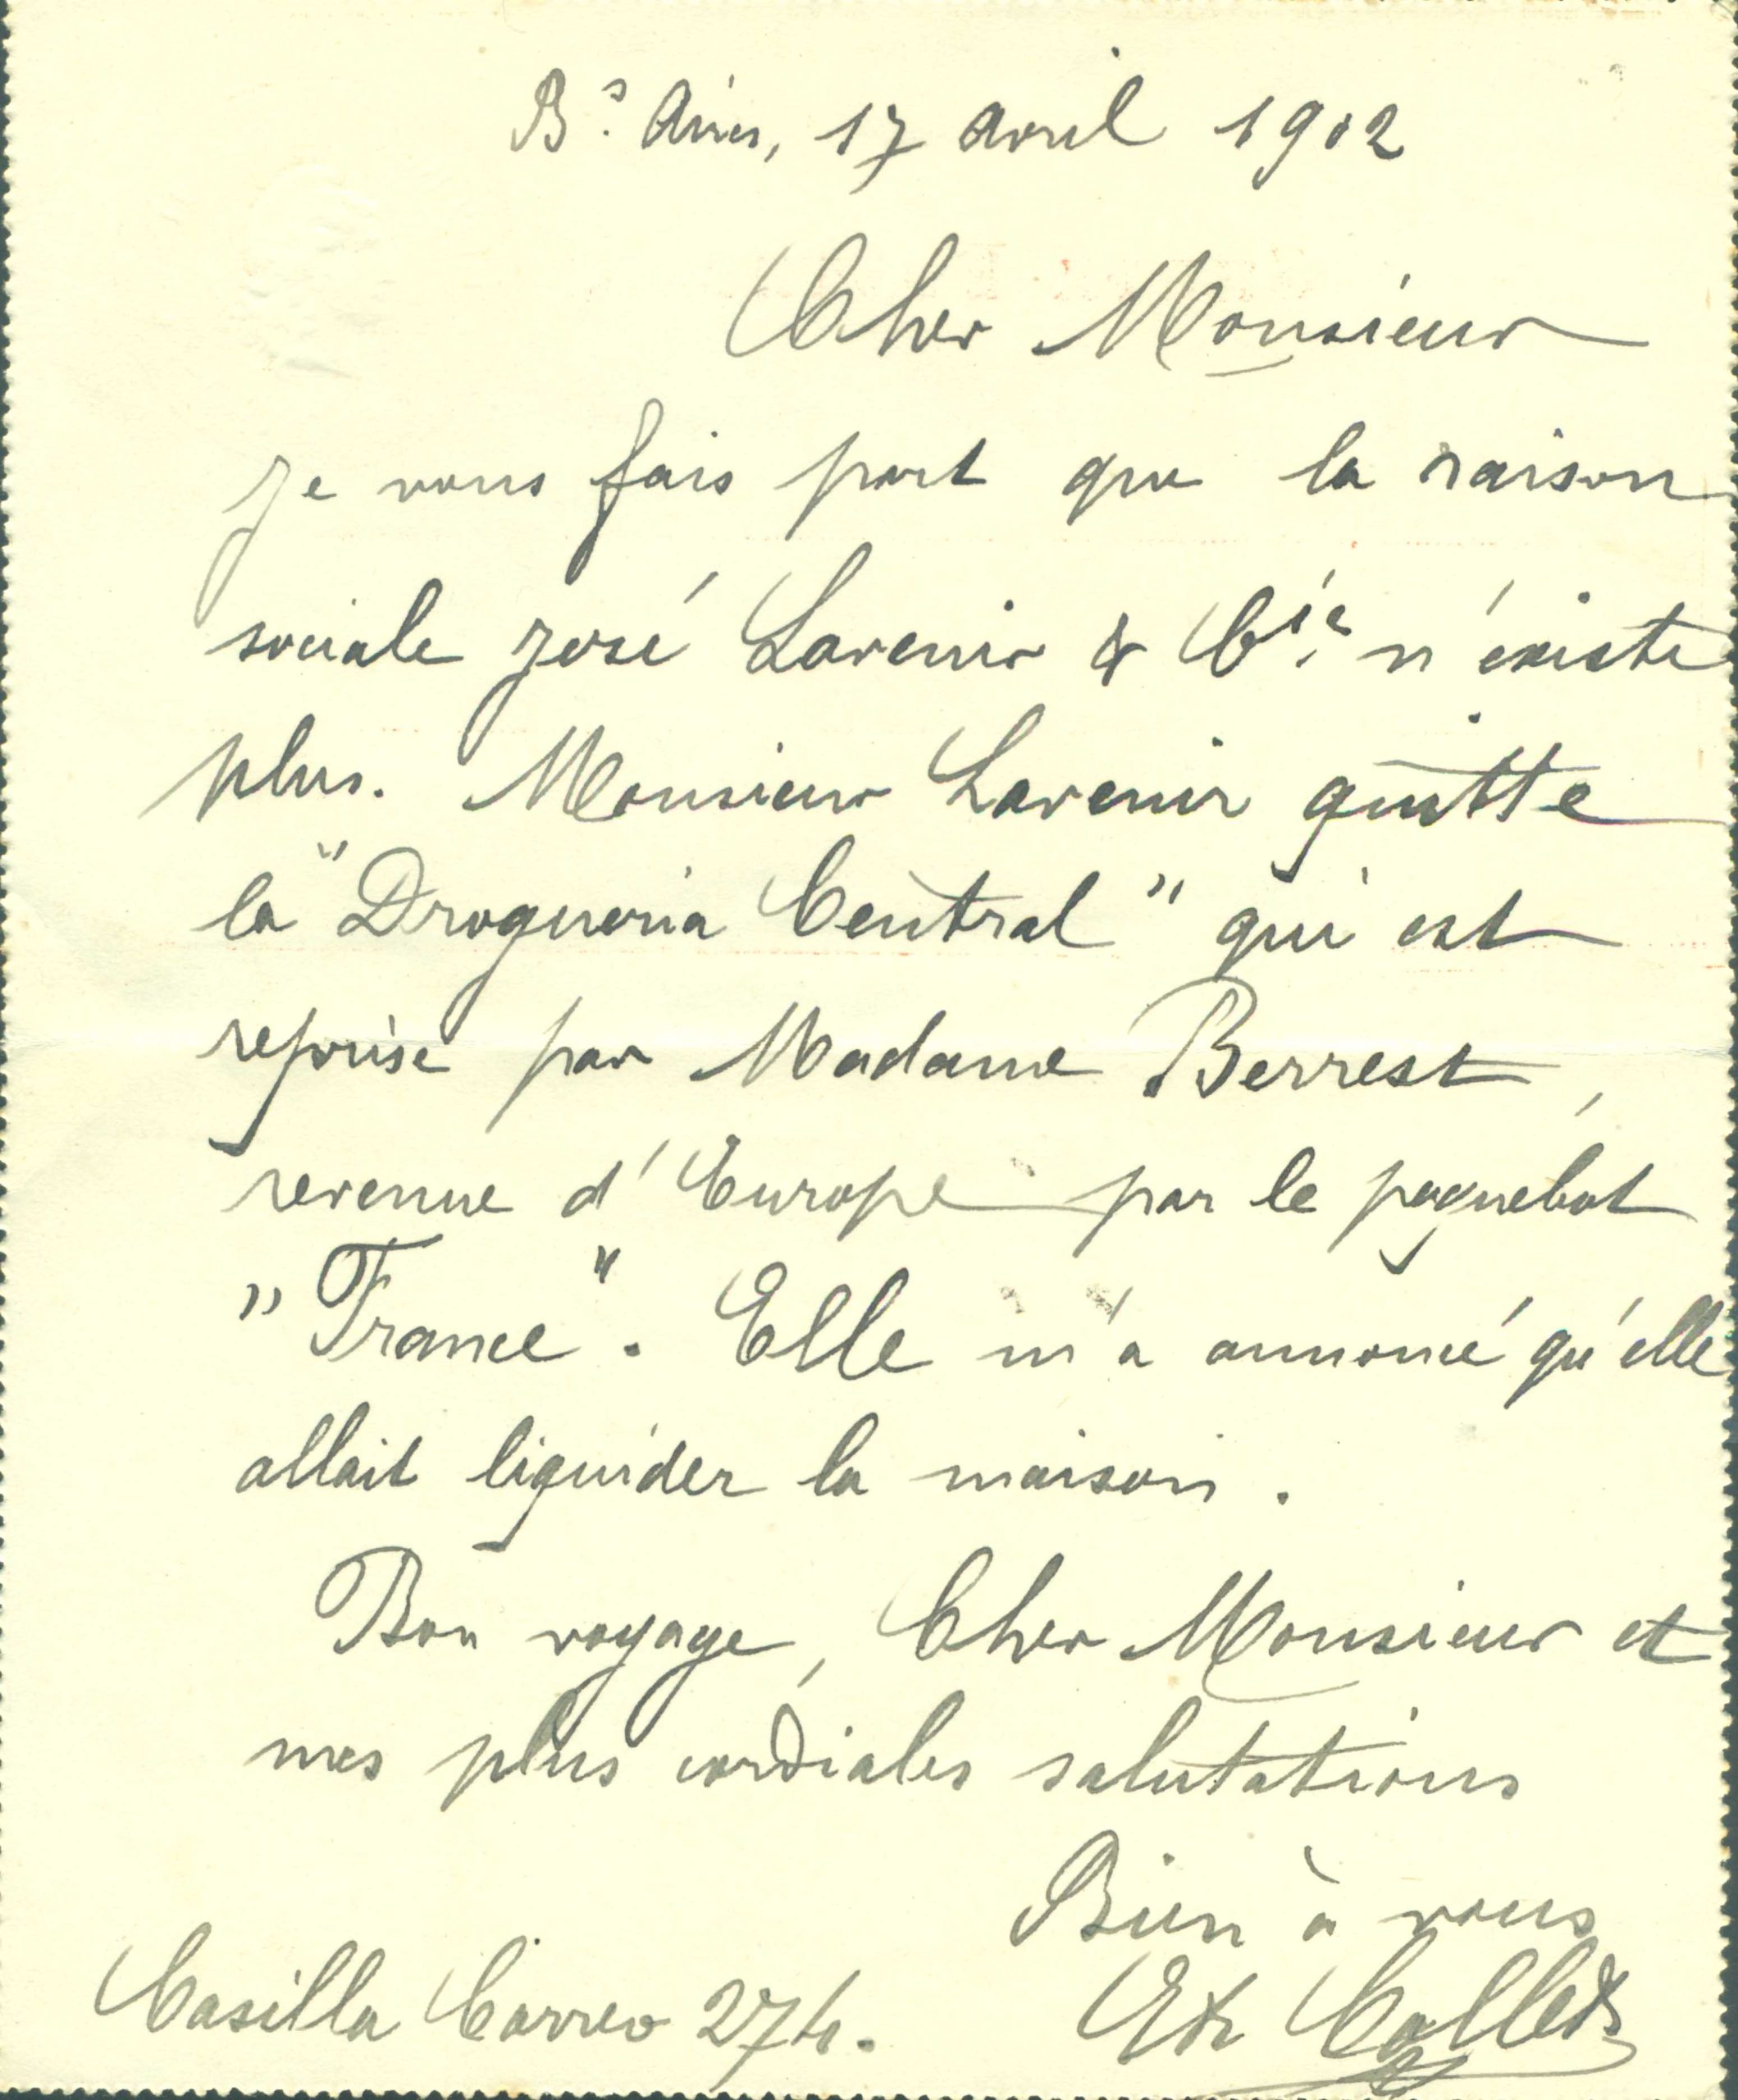 Bs. Aires, 17 avril 1902
Cher Monsieur
je vous fais part que la raison
sociale José Lavenir & Cie. n'existe
plus. Monsieur Lavenir quitte
la "Drogueria Central" qui est
reprise par Madame Berrest,
revenue d'Europe par le paquebot
"France". Elle m'a annoncé qu'elle
allait liquider la maison.
Bon voyage, Cher Monsieur et
mes plus cordiales salutations
Bien à vous
Casilla Correo 274.